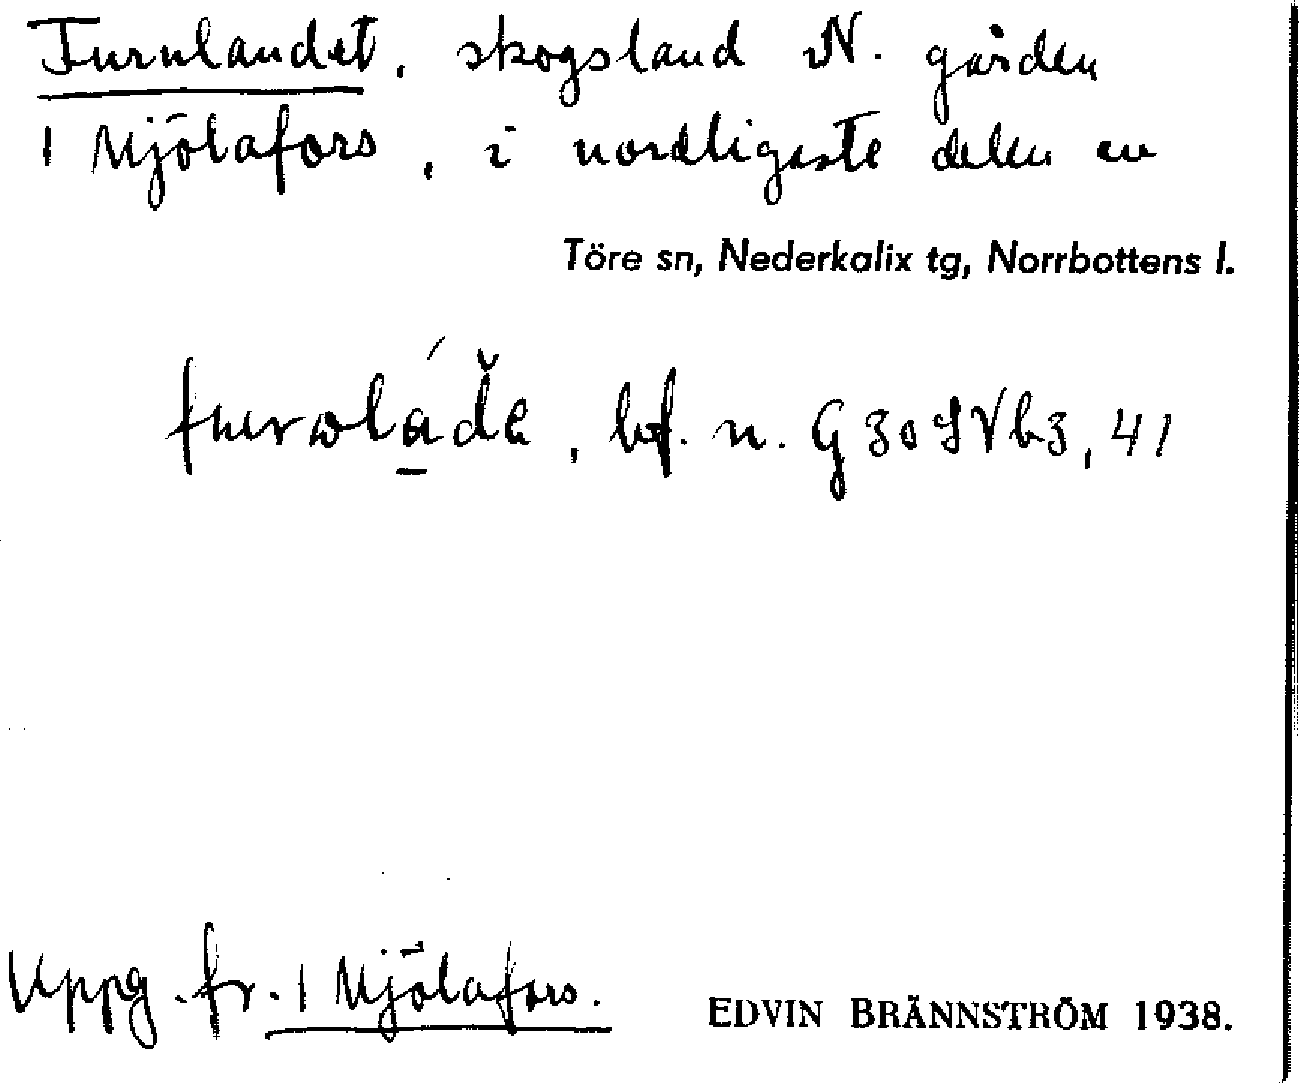 Furnlandet, skogsland N. gården
1 Mjölafors, i nordligaste delen en
Töre sn, Nederkalix tg, Norrbottens l.
bf. n. G 30 SVb3, 41
Uppg. fr. 1 Mjölafors.
EDVIN BRÄNNSTRÖM 1938.